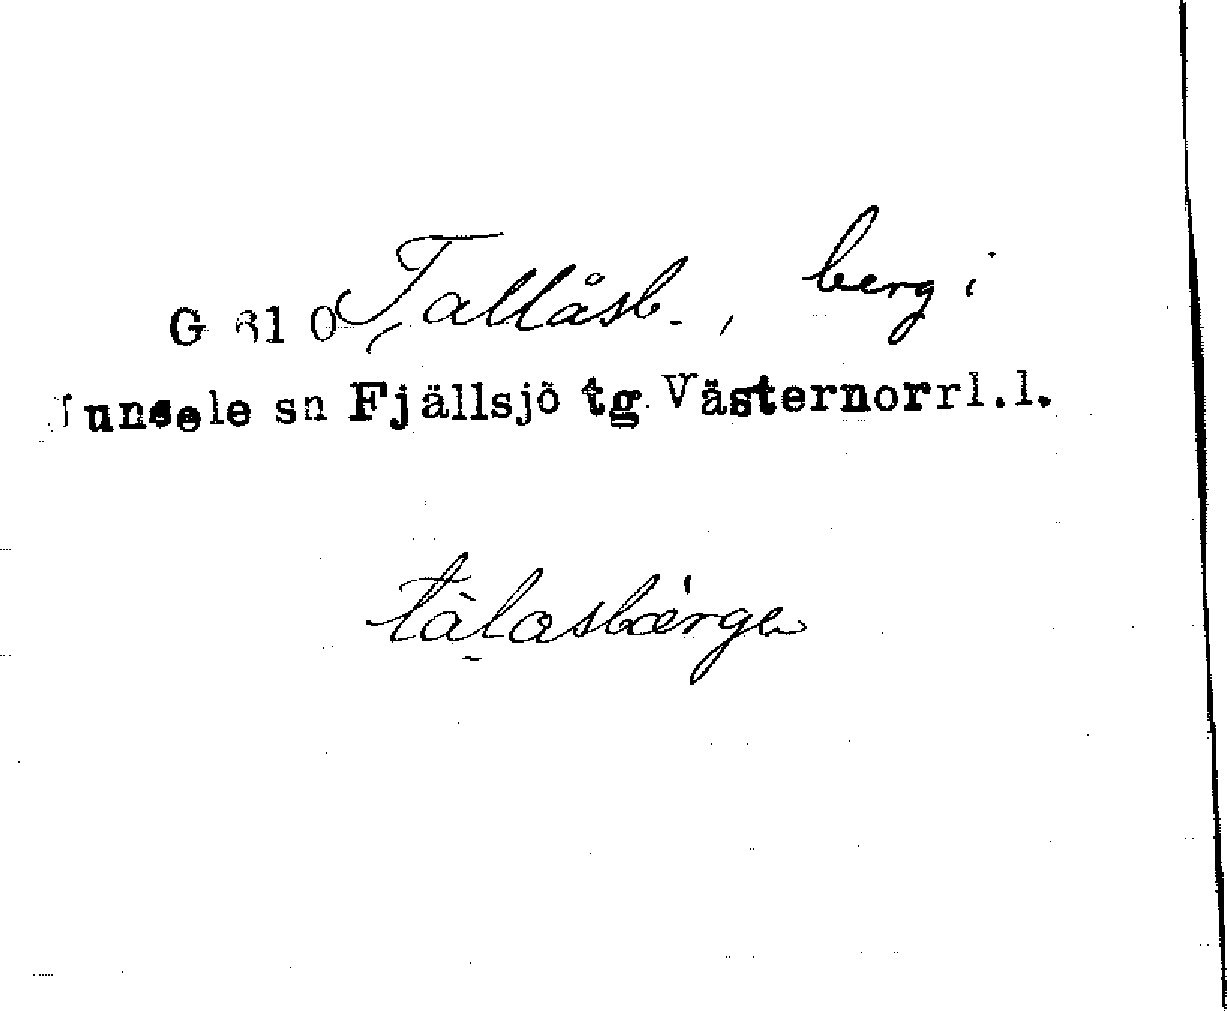 G 610 Tallåsb., berg i
Junsele sn Fjällsjö tg Västernorrl.l.
tàlasbärgε